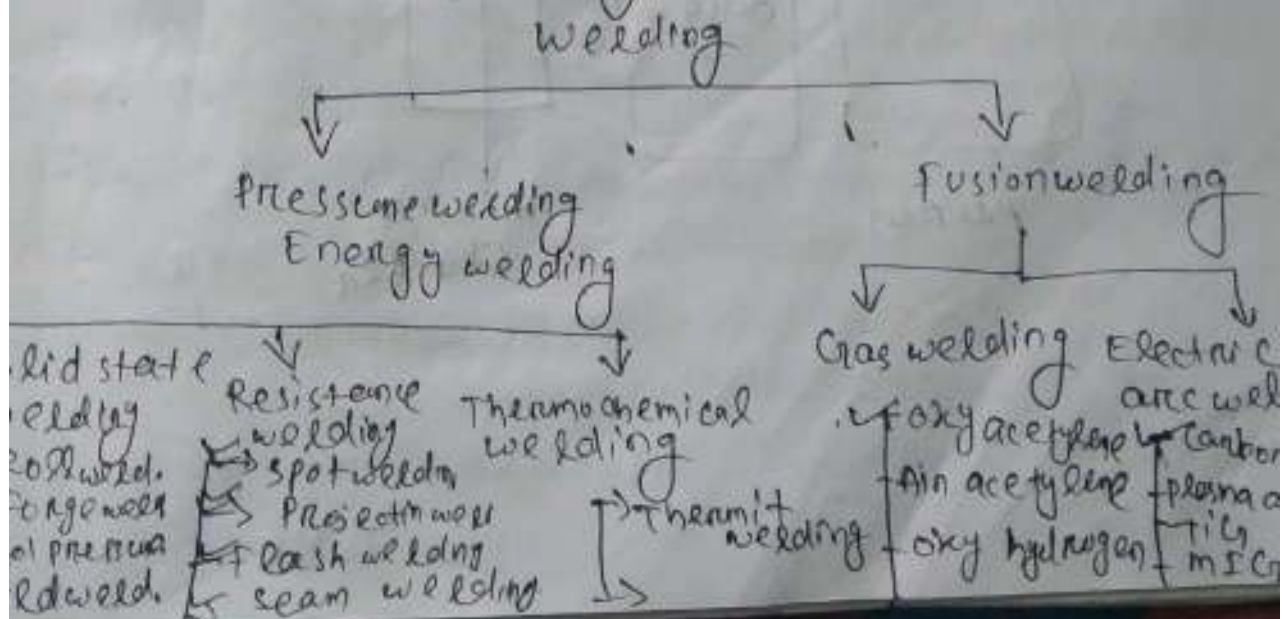 welding
Pressure welding
Energy welding
Fusion welding
lid state
elding
Roll weld.
Forge weld
ol pressua
ld weld.
Resistance
welding
spot weldn
Projectin well
Flash weldng
seam welding
Thermochemical
welding
Thermit
welding
Gas welding
oxy acetylene
Ain acetylene
oxy hydrogen
Electric
arc wel
Carbon
plasma a
TiG
MIG